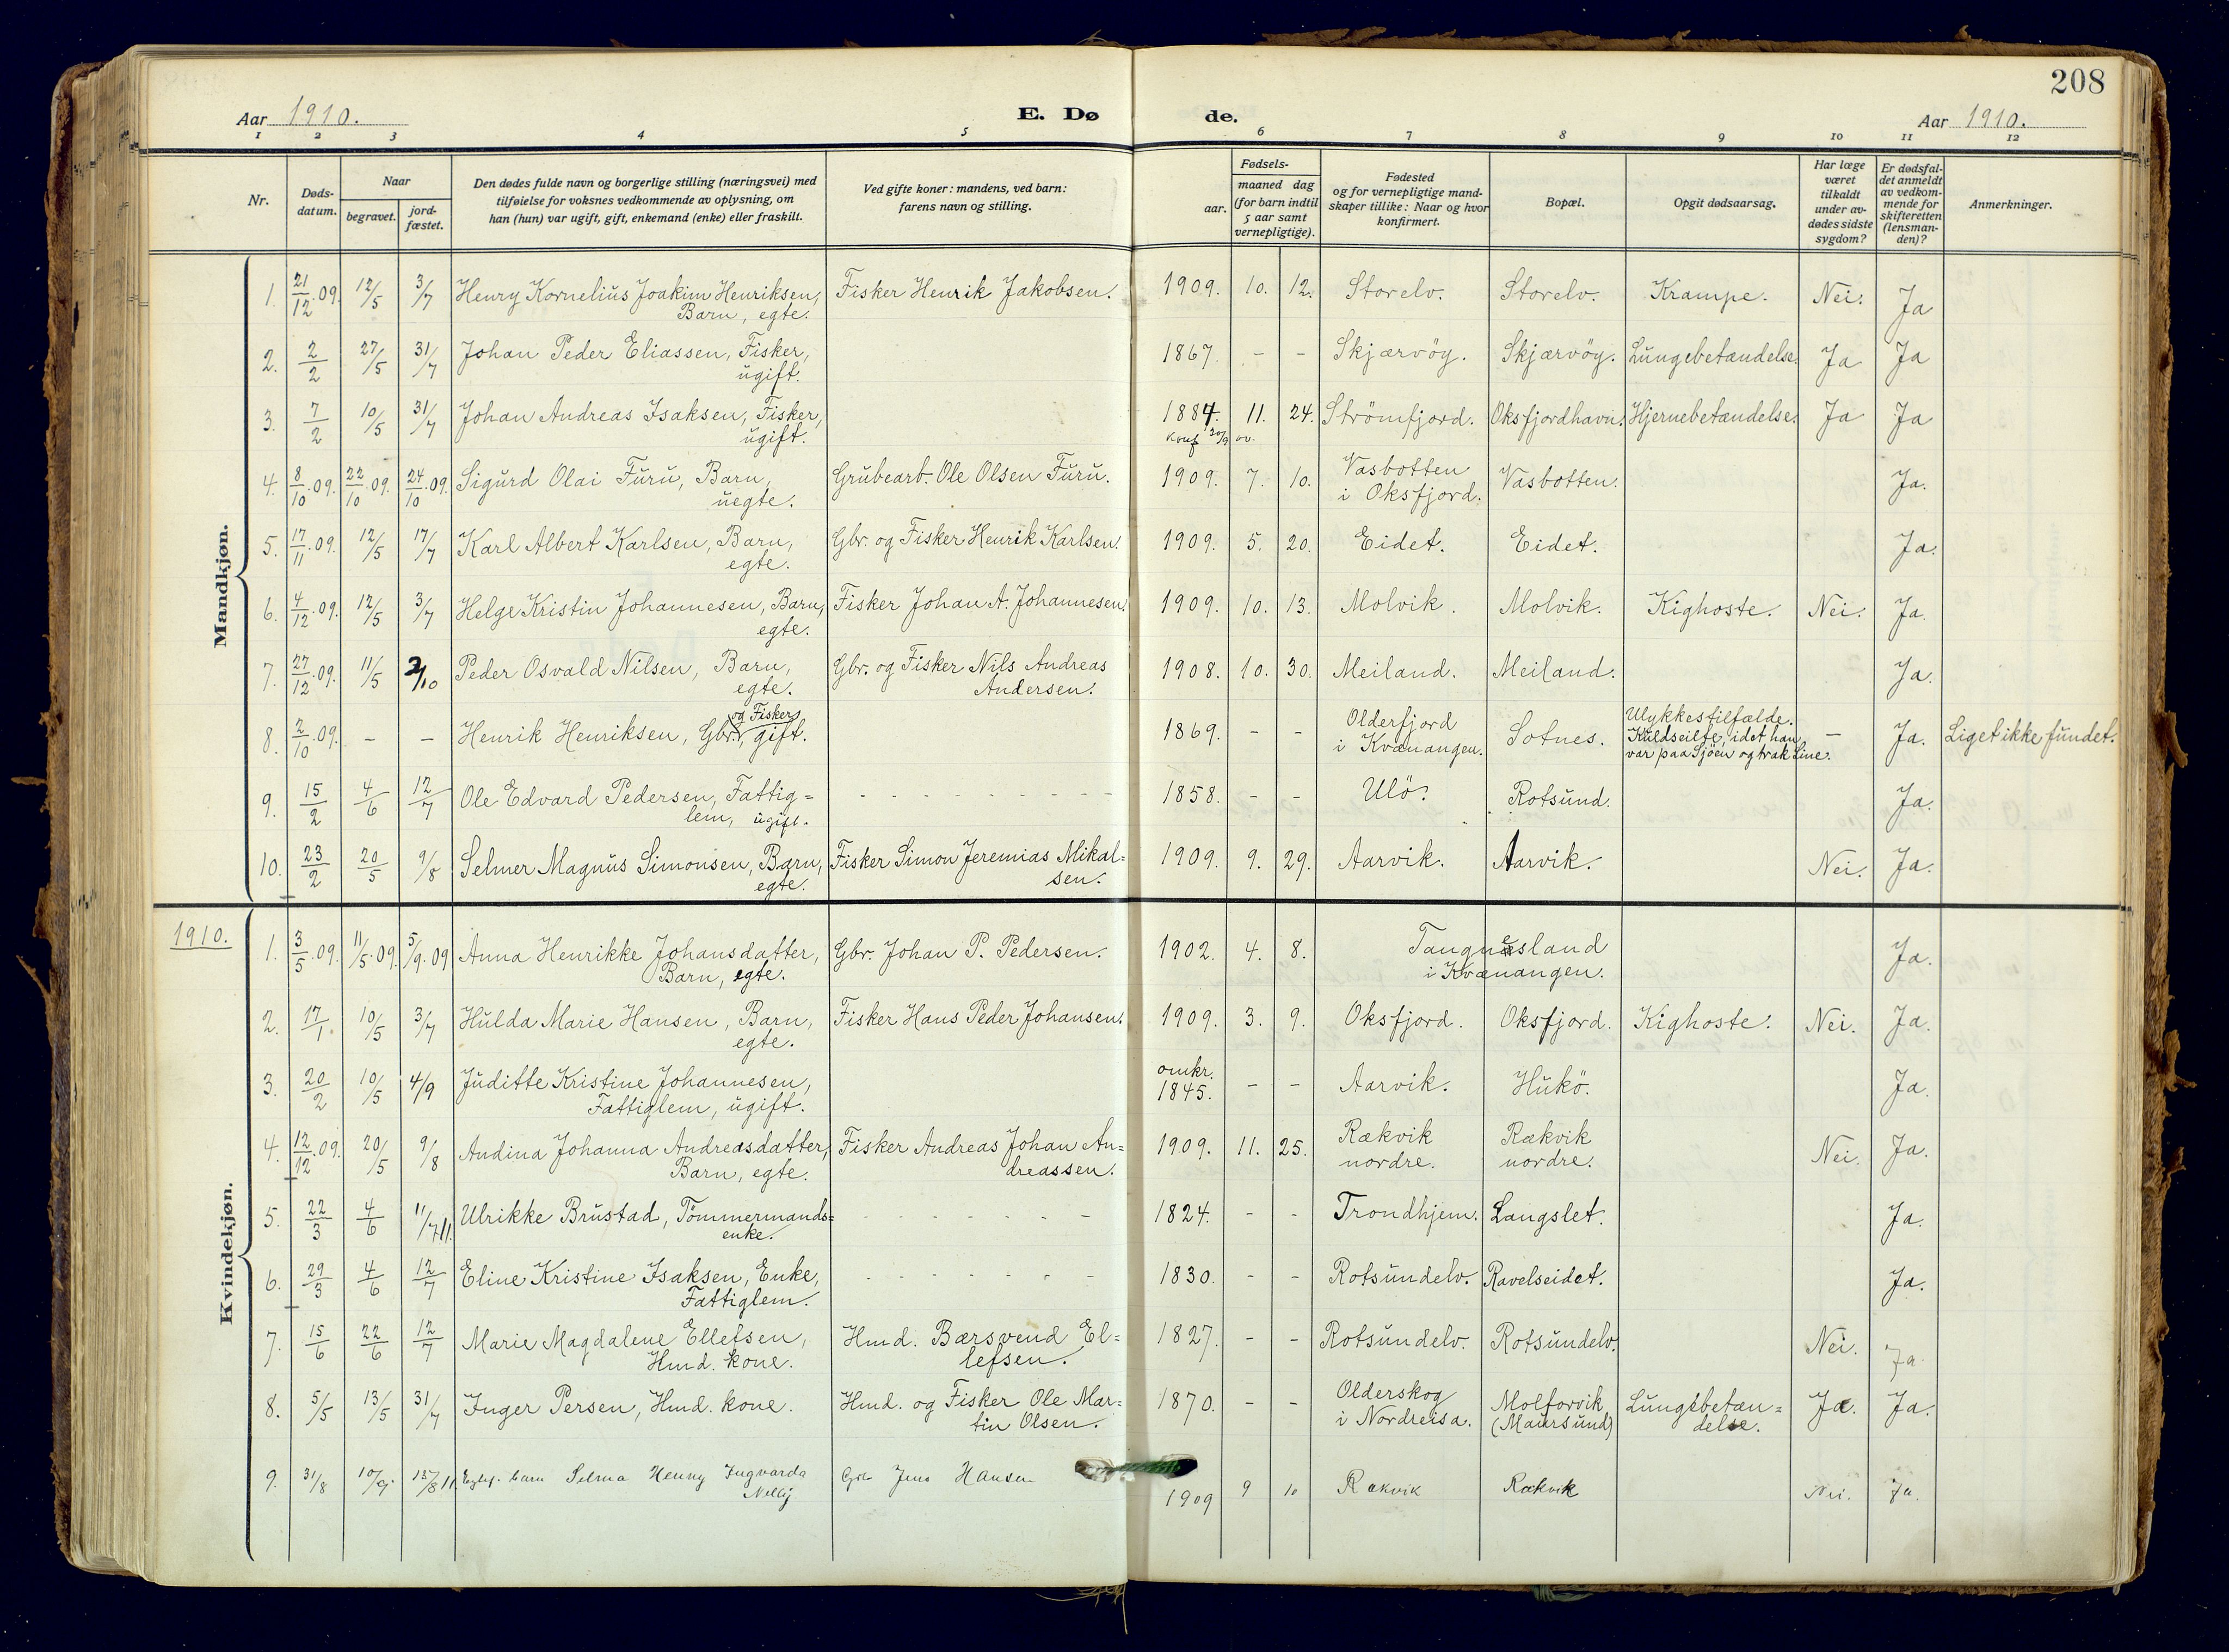 208
Aar 1910. E. Dø de. Aar 1910.
1 2 3 4 5 6 7 8 9 10 11 12
Nr. Døds-datum. Naar begravet. jord-fæstet. Den dødes fulde navn og borgerlige stilling (næringsvei) med tilføielse for voksnes vedkommende av oplysning, om han (hun) var ugift, gift, enkemand (enke) eller fraskilt. Ved gifte koner: mandens, ved barn: farens navn og stilling. Fødsels- aar. maaned dag (for barn indtil 5 aar samt vernepligtige). Fødested og for vernepligtige mand-skaper tillike: Naar og hvor konfirmert. Bopæl. Opgit dødsaarsag. Har læge været tilkaldt under av-dødes sidste sygdom? Er dødsfal-det anmeldt av vedkom-mende for skifteretten (lensman-den)? Anmerkninger.
Mandkjøn.
1. 21/12.09. 12/5 3/7 Henry Kornelius Joakim Henriksen, Fisker Henrik Jakobsen. 1909. 10. 12. Storelv. Storelv. Krampe. Nei. Ja
Barn, egte.
2. 2/2 27/5 31/7 Johan Peder Eliassen, Fisker, 1867. - - Skjærvöy. Skjærvöy. Lungebetændelse. Ja Ja
ugift.
3. 7/2 10/5 31/7 Johan Andreas Isaksen, Fisker, 1884. 11. 24. Strömfjord. Oksfjordhavn. Hjernebetændelse. Ja Ja
ugift.
4. 8/10.09. 22/10.09. 24/10.09. Sigurd Olai Furu, Barn, Grubearb. Ole Olsen Furu. 1909. 7. 10. Vasbotten Vasbotten. Ja.
uegte. i Oksfjord.
5. 17/11.09. 12/5 17/7 Karl Albert Karlsen, Barn, Gbr. og Fisker Henrik Karlsen. 1909. 5. 20. Eidet. Eidet. Ja.
egte.
6. 4/12.09. 12/5 3/7 Helge Kristin Johannesen, Barn, Fisker Johan A. Johannesen. 1909. 10. 13. Molvik. Molvik. Kighoste. Nei. Ja.
egte.
7. 27/12.09. 11/5 2/10 Peder Osvald Nilsen, Barn, Gbr. og Fisker Nils Andreas 1908. 10. 30. Meiland. Meiland. Ja.
egte. Andersen.
og Fisker Olderfjord Ulykkestilfælde.
8. 2/10.09. - - Henrik Henriksen, Gbr., gift. 1869. - - i Kvænangen. Sotnes. Kuldseilte, idet han - Ja. Liget ikke fundet.
var paa Sjöen og trak Line.
9. 15/2 4/6 12/7 Ole Edvard Pedersen, Fattig= 1858. - - Ulö. Rotsund. Ja.
lem, ugift.
10. 23/2 20/5 9/8 Selmer Magnus Simonsen, Barn, Fisker Simon Jeremias Mikal= 1909. 9. 29. Aarvik. Aarvik. Nei. Ja.
egte. sen.
1910.
Kvindekjøn.
1. 3/5.09. 11/5.09. 5/9.09 Anna Henrikke Johansdatter, Gbr. Johan P. Pedersen. 1902. 4. 8. Tangnesland Ja.
Barn, egte. i Kvænangen.
2. 17/1. 10/5 3/7 Hulda Marie Hansen, Barn, Fisker Hans Peder Johansen. 1909. 3. 9. Oksfjord. Oksfjord. Kighoste. Nei. Ja.
egte.
3. 20/2 10/5 4/9 Juditte Kristine Johannesen, omkr. 1845. - - Aarvik. Hukö. Ja.
Fattiglem, ugift.
4. 12/12.09. 20/5 9/8 Andina Johanna Andreasdatter, Fisker Andreas Johan An= 1909. 11. 25. Rækvik Rækvik Nei. Ja.
Barn, egte. dreassen. nordre. nordre.
5. 22/3 4/6 11/7 11. Ulrikke Brustad, Tömmermands= 1824. - - Trondhjem. Langslet. Ja.
enke.
6. 29/3 4/6 12/7 Eline Kristine Isaksen, Enke, 1830. - - Rotsundelv. Ravelseidet. Ja.
Fattiglem.
7. 15/6 22/6 12/7 Marie Magdalene Ellefsen, Hmd. Bærsvend El= 1827. - - Rotsundelv. Rotsundelv. Nei. Ja.
Hmd. kone. lefsen.
8. 5/5 13/5 31/7 Inger Persen, Hmd. kone. Hmd. og Fisker Ole Mar= 1870. - - Olderskog Molforvik Lungebetæn= Ja. Ja.
tin Olsen. i Nordreisa. (Maursund) delse.
9. 31/8 10/9. 15/8 11. barn Selma Henny Ingvarda Jens Hansen 1909 9 10 Rækvik Rækvik Nei. Ja.
Nelly